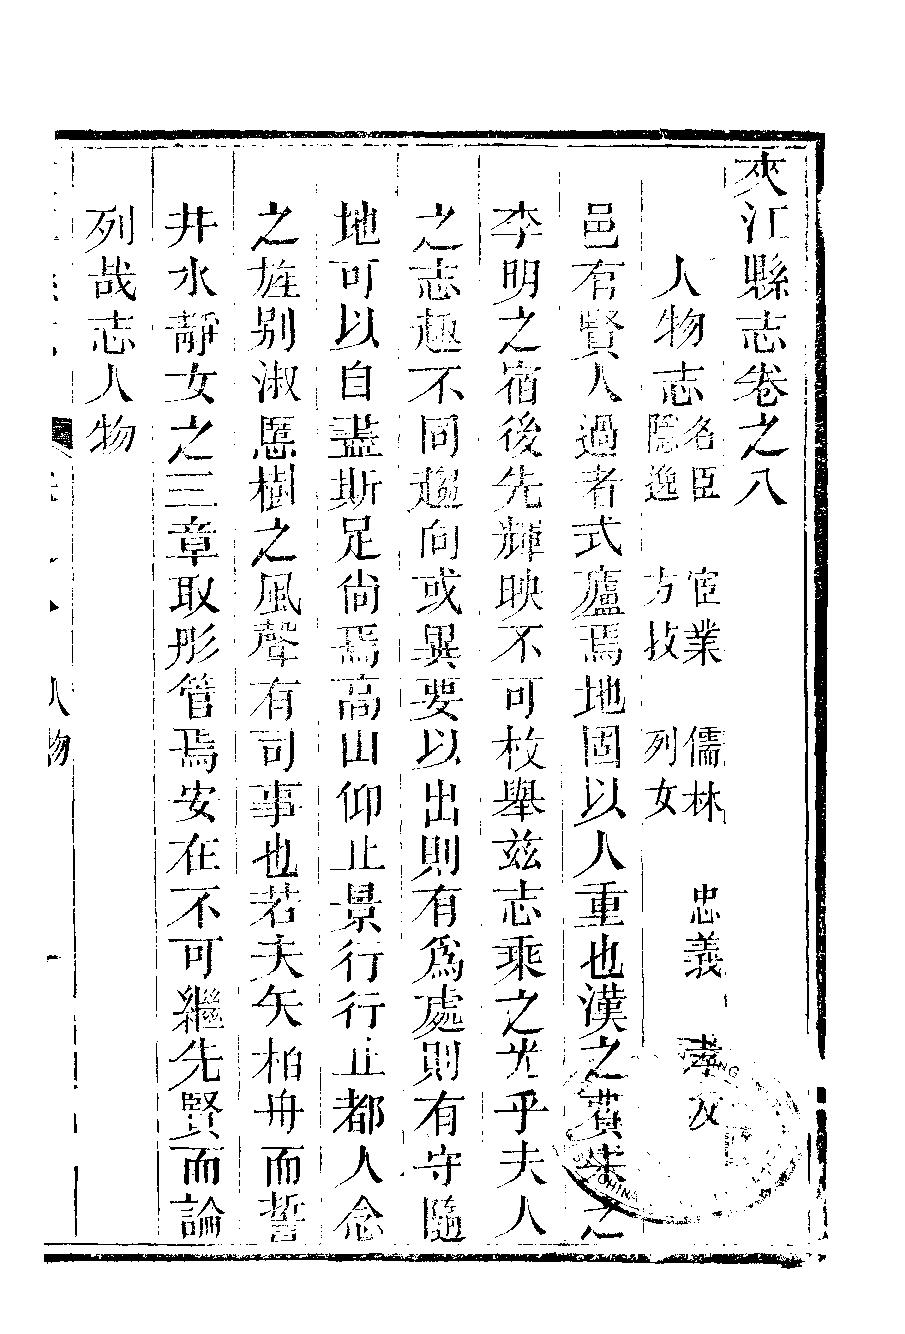 夾江縣志卷之八
人物志 名臣 宦業 儒林 忠義 孝友
隱逸 方技 列女
邑有賢人過者式廬焉地固以人重也漢之費宋之
李明之宿後先輝映不可枚舉兹志乘之光乎夫人
之志趣不同趨向或異要以出則有為處則有守隨
地可以自盡斯足尙焉高山仰止景行行止都人念
之旌别淑慝樹之風聲有司事也若夫矢柏舟而誓
井水靜女之三章取彤管焉安在不可繼先賢而論
列哉志人物
人物
一
CHINA